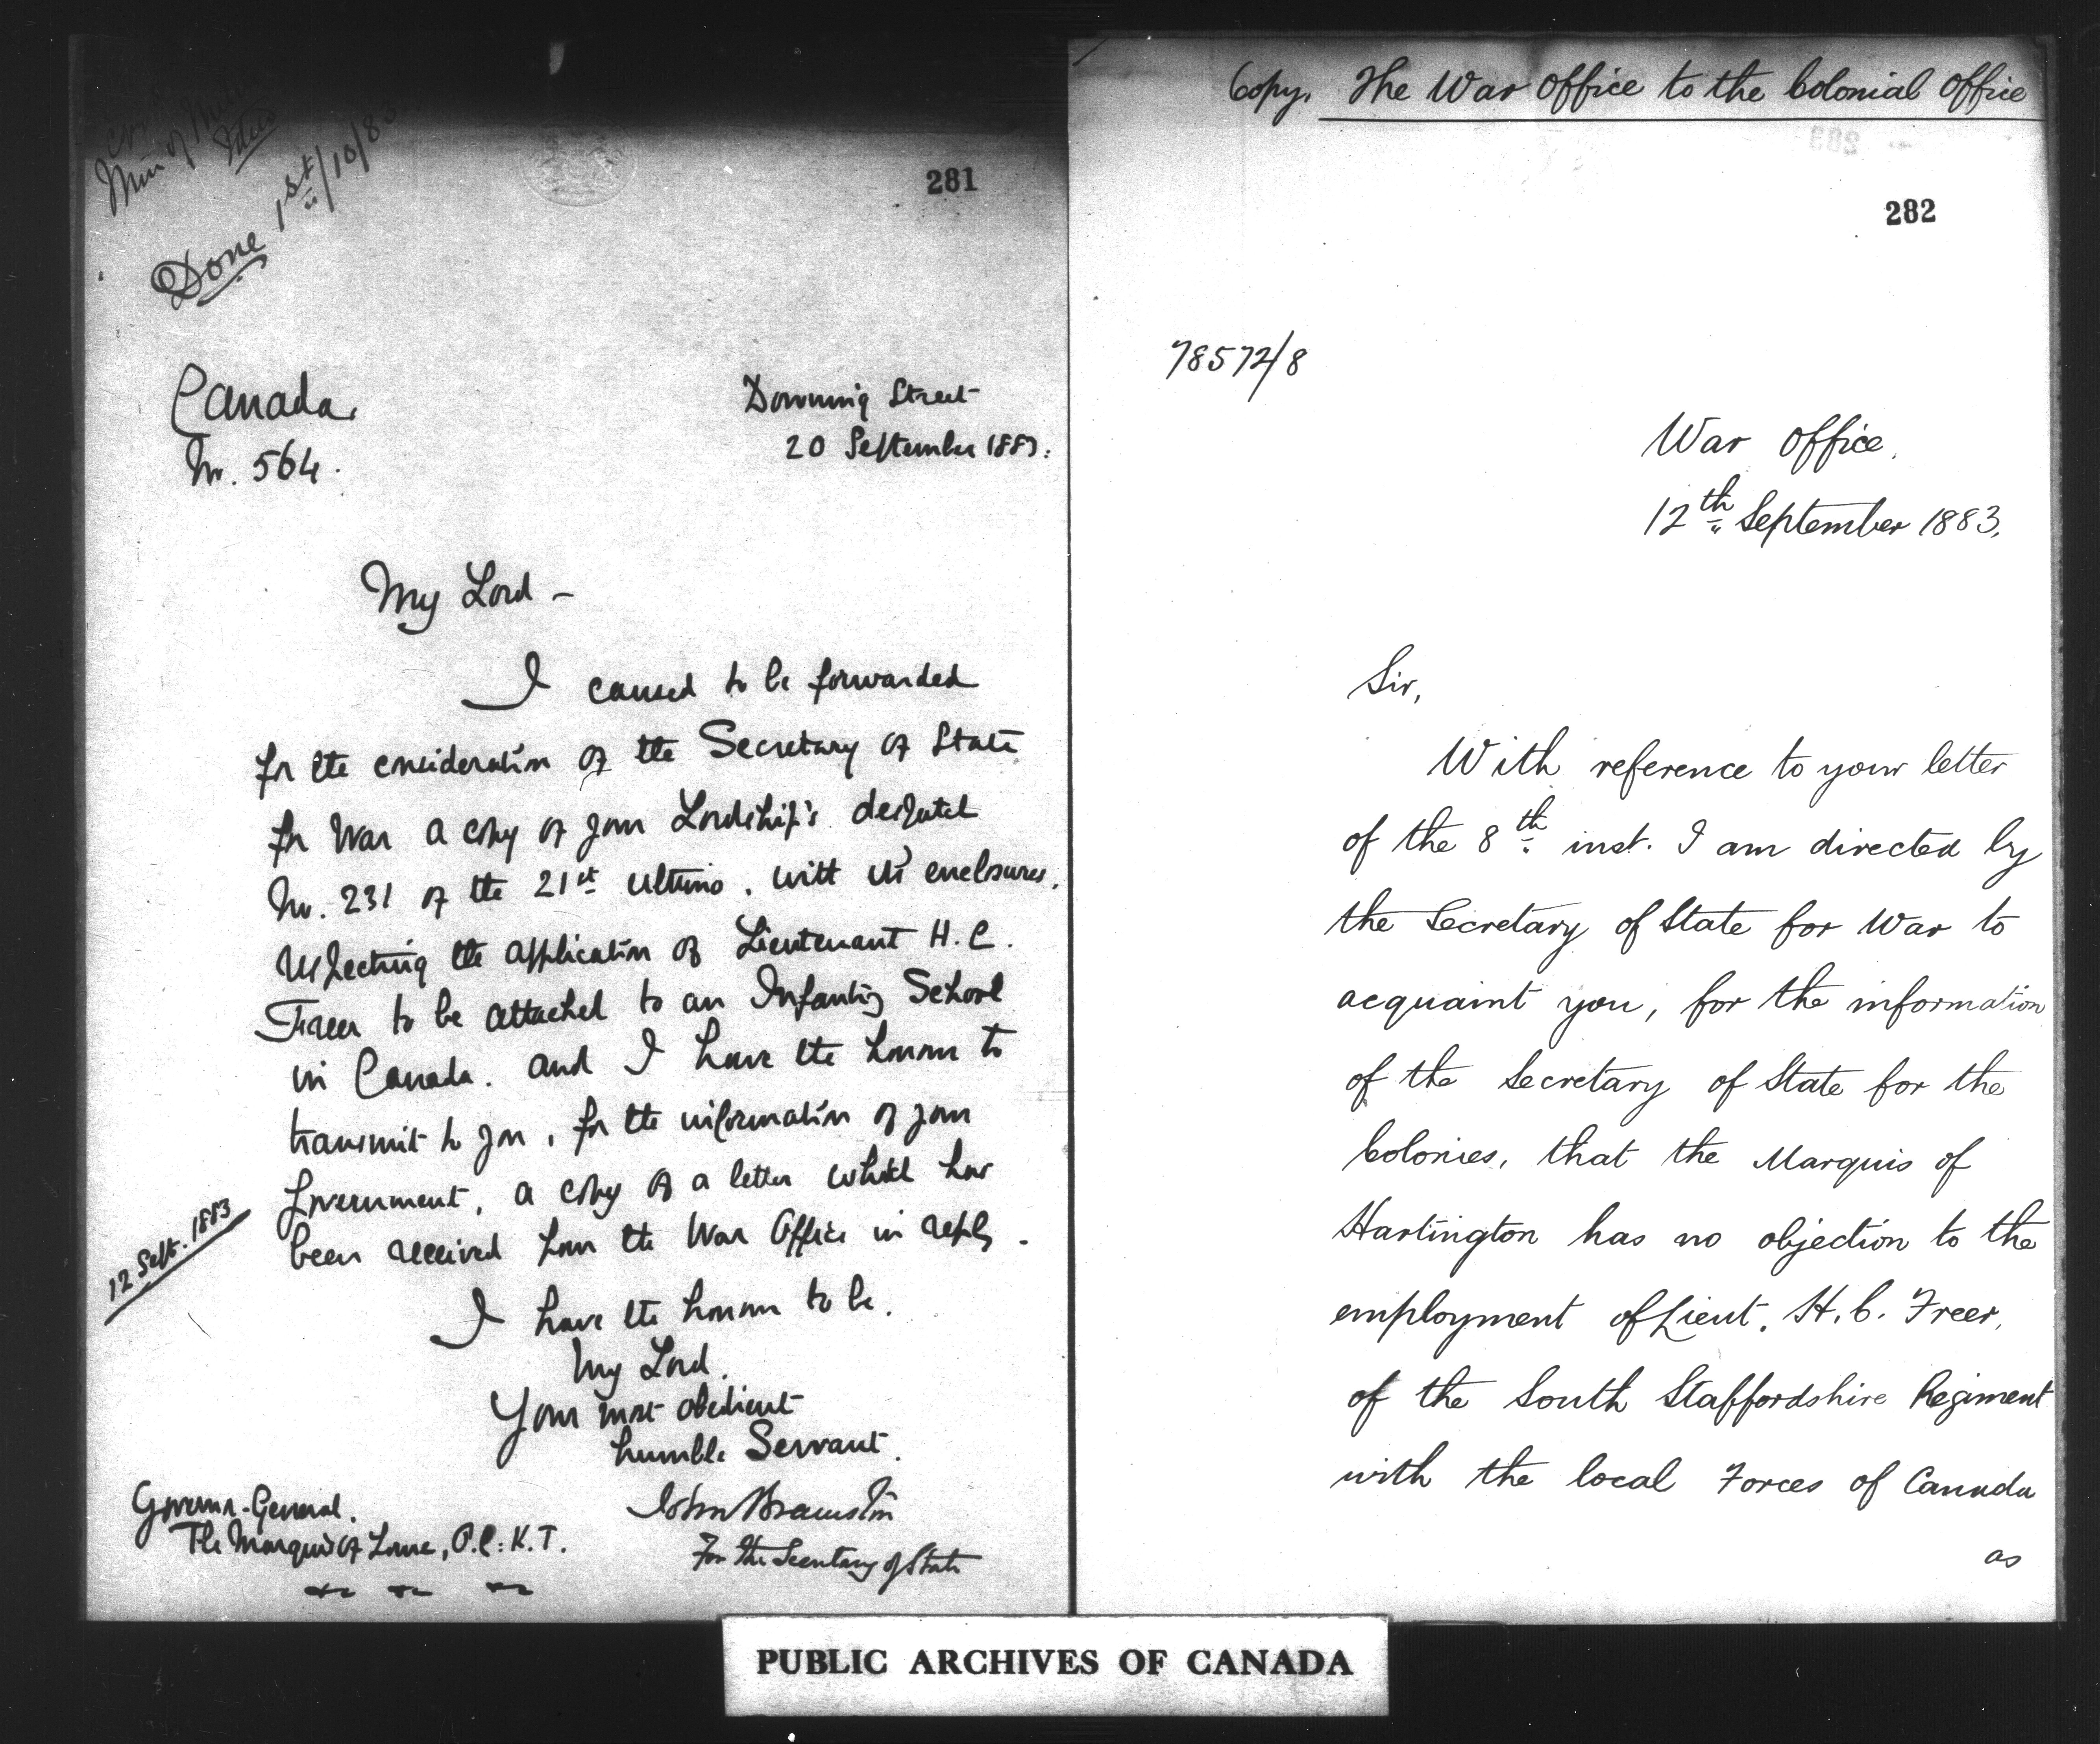 Min of Militia
Done 1st/10/83
281
Canada
No. 564.
Downing Street
20 September 1883.
My Lord -
I caused to be forwarded
for the consideration of the Secretary of State
for War a copy of your Lordship's despatch
No. 231 of the 21st Ultimo, with its enclosures,
respecting the application of Lieutenant H. C.
Freer to be attached to an Infantry School
in Canada. and I have the honour to
transmit to you, for the information of your
Government, a copy of a letter which has
been received from the War Office in reply.
12 Sept. 1883
I have the honour to be,
My Lord,
Your most obedient
humble Servant.
John Bramston
For the Secretary of State
Governor-General.
The Marquis of Lorne, P.C: K.T.
Copy. The War Office to the Colonial Office
282
78572/8
War Office,
12th September 1883.
Sir,
With reference to your letter
of the 8th inst. I am directed by
the Secretary of State for War to
acquaint you, for the information
of the Secretary of State for the
Colonies, that the Marquis of
Hartington has no objection to the
employment of Lieut. H. C. Freer,
of the South Staffordshire Regiment
with the local Forces of Canada
as
PUBLIC ARCHIVES OF CANADA